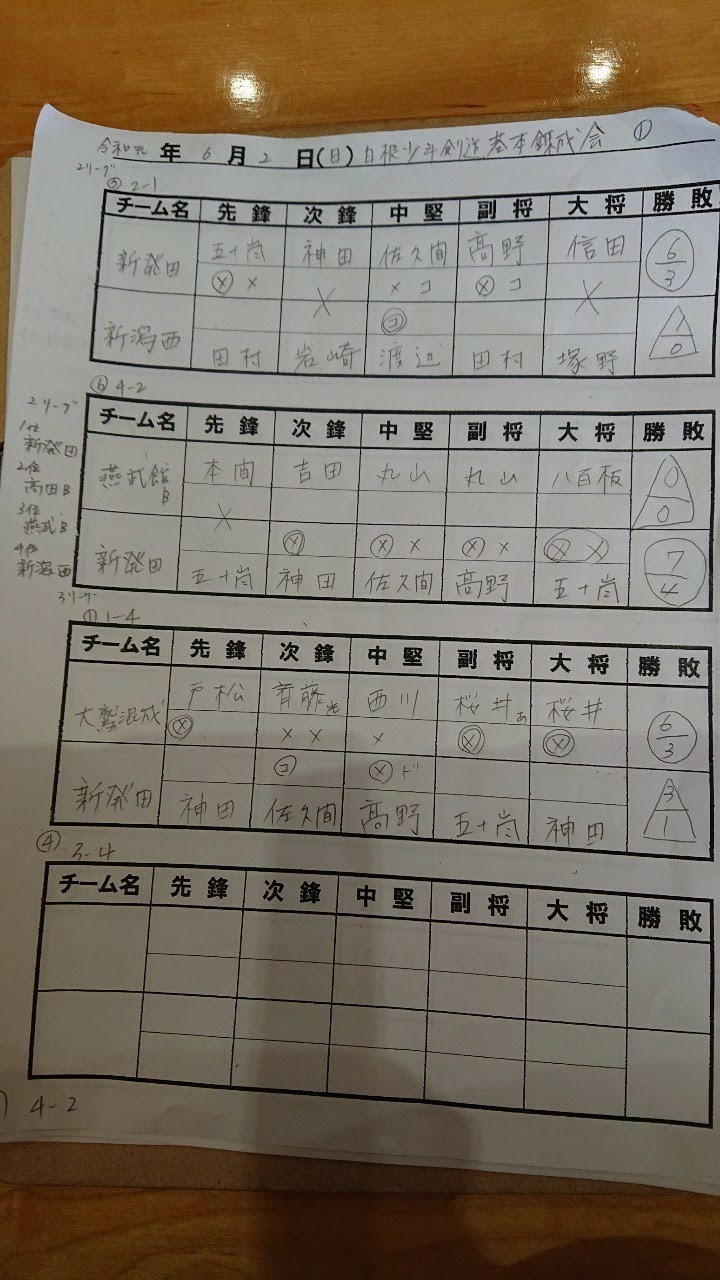 令和元 年 6 月 2 日(日) 白根少年剣道基本錬成会 ①
2リーグ
⑤ 2-1
チーム名 先鋒 次鋒 中堅 副将 大将 勝敗
新発田 五十嵐 神田 佐久間 髙野 信田 6/3
ⓧ × × コ ⓧ コ
× ×
㋙
新潟西 田村 岩崎 渡辺 田村 塚野 1/0
⑥ 4-2
チーム名 先鋒 次鋒 中堅 副将 大将 勝敗
燕武館B 本間 吉田 丸山 丸山 八百板 0/0
×
ⓧ ⓧ × ⓧ × ⓧ ⓧ
新発田 五十嵐 神田 佐久間 髙野 五十嵐 7/4
2リーグ
1位
新発田
2位
高田B
3位
燕武B
4位
新潟西
3リーグ
① 1-4
チーム名 先鋒 次鋒 中堅 副将 大将 勝敗
大鷲混成 戸松 斉藤光 西川 桜井あ 桜井 6/3
ⓧ × × × ⓧ ⓧ
㋙ ⓧ ド
新発田 神田 佐久間 髙野 五十嵐 神田 3/1
④ 3-4
チーム名 先鋒 次鋒 中堅 副将 大将 勝敗
4-2